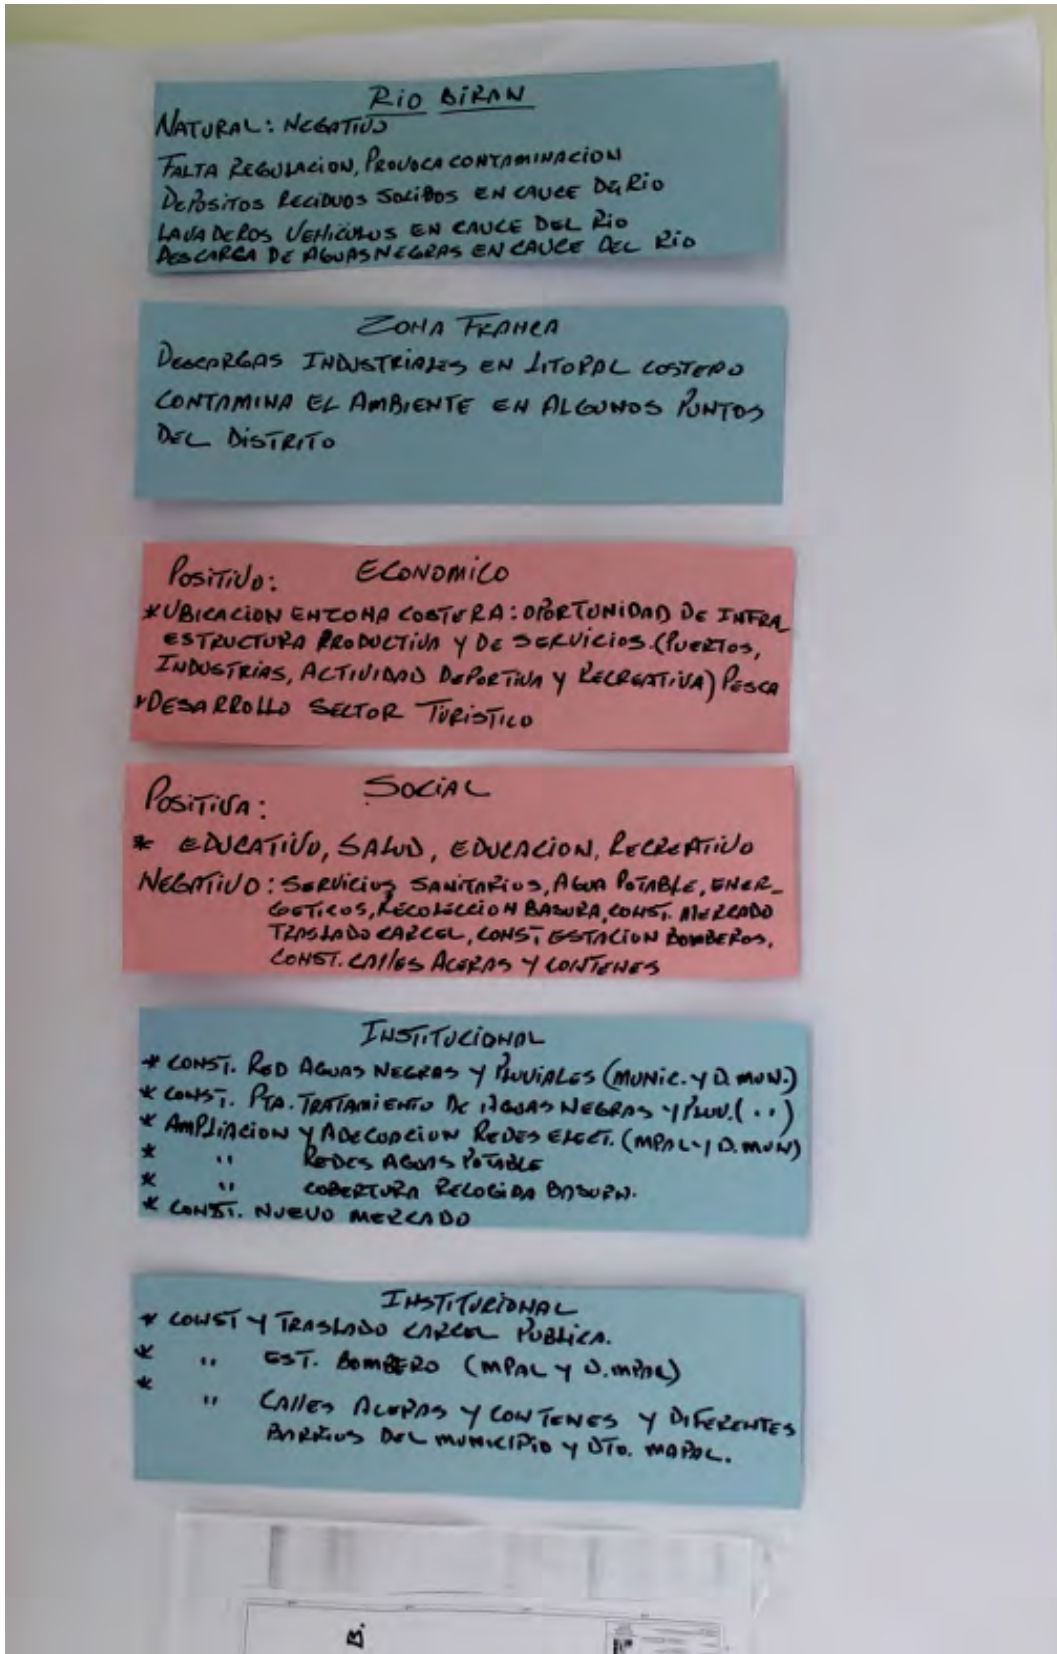 RIO BIRAN
NATURAL: NEGATIVO
FALTA REGULACION, PROVOCA CONTAMINACION
DEPOSITOS RECIDUOS SOLIDOS EN CAUCE DEL RIO
LAVADEROS VEHICULOS EN CAUCE DEL RIO
DESCARGA DE AGUAS NEGRAS EN CAUCE DEL RIO
ZONA FRANCA
DESCARGAS INDUSTRIALES EN LITORAL COSTERO
CONTAMINA EL AMBIENTE EN ALGUNOS PUNTOS
DEL DISTRITO
POSITIVO: ECONOMICO
* UBICACION EN ZONA COSTERA: OPORTUNIDAD DE INFRA
ESTRUCTURA PRODUCTIVA Y DE SERVICIOS. (PUERTOS,
INDUSTRIAS, ACTIVIDAD DEPORTIVA Y RECREATIVA) PESCA
* DESARROLLO SECTOR TURISTICO
SOCIAL
POSITIVA:
* EDUCATIVO, SALUD, EDUCACION, RECREATIVO
NEGATIVO: SERVICIOS SANITARIOS, AGUA POTABLE, ENER-
GETICOS, RECOLECCION BASURA, CONST. MERCADO
TRASLADO CARCEL, CONST. ESTACION BOMBEROS,
CONST. CALLES ACERAS Y CONTENES
INSTITUCIONAL
* CONST. RED AGUAS NEGRAS Y PLUVIALES (MUNIC. Y D. MUN.)
* CONST. PTA. TRATAMIENTO DE AGUAS NEGRAS Y PLUV. (··)
* AMPLIACION Y ADECUACION REDES ELECT. (MPAL Y D. MUN)
* " REDES AGUAS POTABLE
* " COBERTURA RECOGIDA BASURA.
* CONST. NUEVO MERCADO
INSTITUCIONAL
* CONST Y TRASLADO CARCEL PUBLICA.
* " EST. BOMBERO (MPAL Y D. MPAL)
* " CALLES ACERAS Y CONTENES Y DIFERENTES
BARRIOS DEL MUNICIPIO Y DTO. MAPAL.
B.